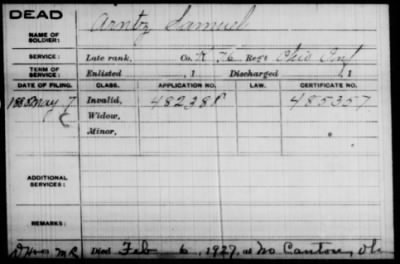 DEAD
Arntz Samuel
NAME OF SOLDIER:
SERVICE: Late rank, Co. K 76 Reg't Ohio Inf
TERM OF SERVICE: Enlisted , 1 Discharged , 1
DATE OF FILING. CLASS. APPLICATION NO. LAW. CERTIFICATE NO.
1885 May 7 Invalid, 482381 485357
Widow,
Minor,
ADDITIONAL SERVICES:
REMARKS:
Died Feb 6, 1927, at No. Canton, Oh